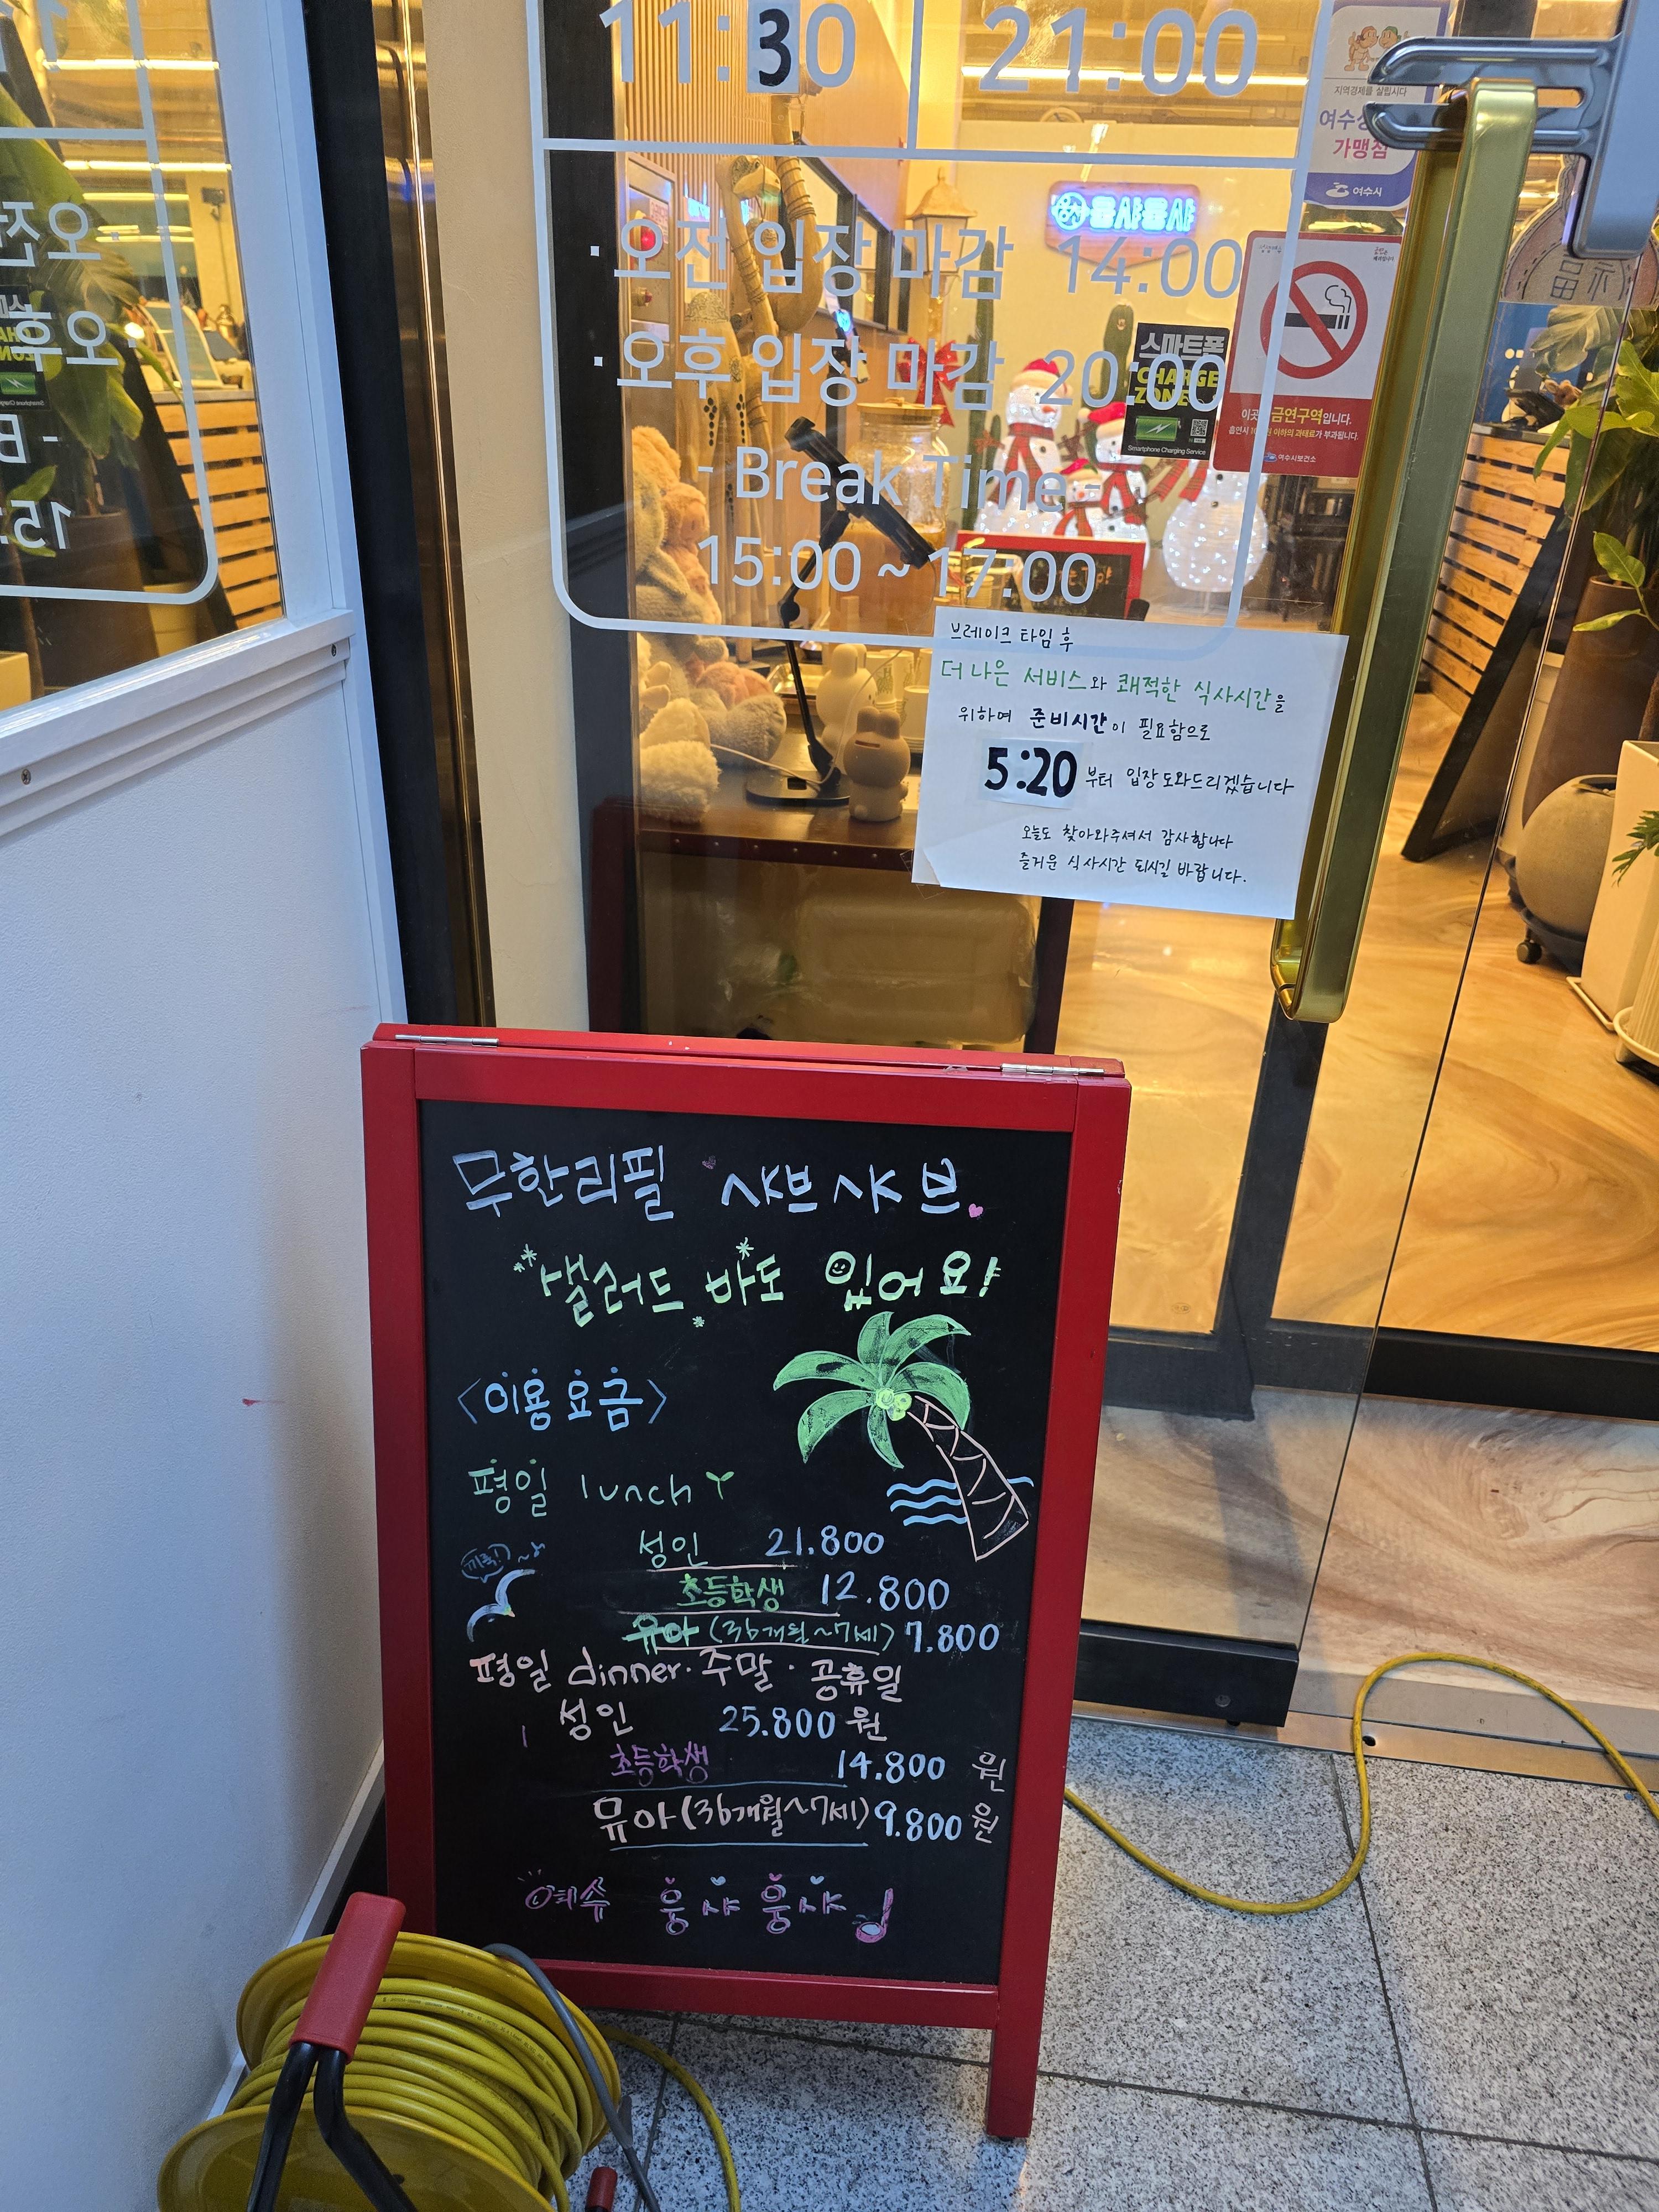 11:30 21:00
· 오전 입장 마감 14:00
· 오후 입장 마감 20:00
- Break Time -
15:00 ~ 17:00
지역경제를 살립시다
가맹점
여수시
스마트폰
CHARGE
ZONE
Smartphone Charging Service
금연구역입니다.
여수시보건소
브레이크 타임 후
더 나은 서비스와 쾌적한 식사시간을
위하여 준비시간이 필요함으로
5:20 부터 입장 도와드리겠습니다
오늘도 찾아와주셔서 감사합니다
즐거운 식사시간 되시길 바랍니다.
무한리필 샤브샤브
샐러드 바도 있어요!
<이용 요금>
평일 lunch
성인 21.800
초등학생 12.800
끼룩!
유아 (36개월~7세) 7.800
평일 dinner · 주말 · 공휴일
성인 25.800 원
초등학생 14.800 원
유아 (36개월~7세) 9.800 원
여수 웅샤웅샤